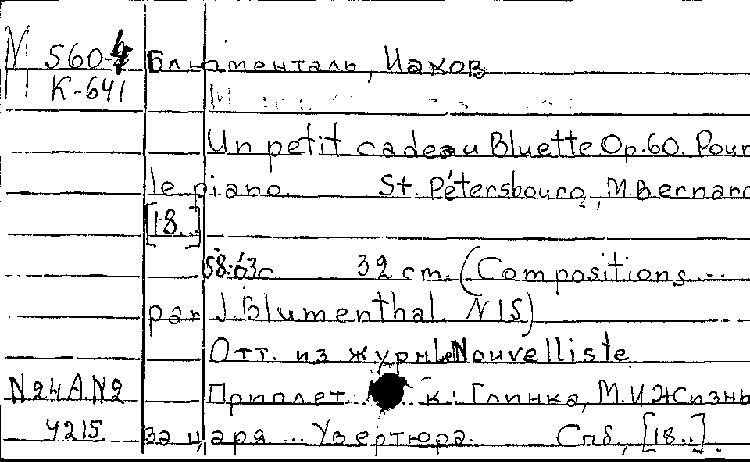 М 560-4 Блюменталь, Иаков
К-641
Un petit cadeau Bluette Op.60. Pour
le piano. St. Pétersbourg, M Bernard
[18..]
58-63с 32 cm. (Compositions...
par J. Blumenthal N 15)
Отт. из журн. Le Nouvelliste
N 24 A N2 Приплет к: Глинка, М.И Жизнь
4215 за царя... Увертюра. Спб, [18..].